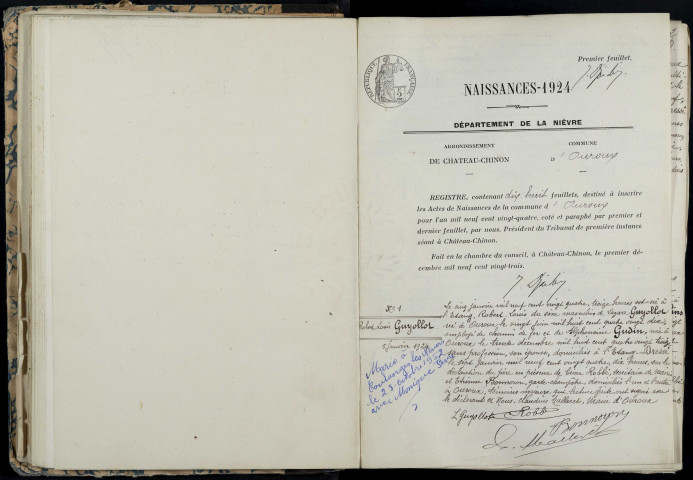 Premier feuillet.
RÉPUBLIQUE FRANÇAISE
NAISSANCES-1924
DÉPARTEMENT DE LA NIÈVRE
ARRONDISSEMENT COMMUNE
DE CHATEAU-CHINON D'Ouroux
REGISTRE, contenant dix huit feuillets, destiné à inscrire
les Actes de Naissances de la commune d'Ouroux
pour l'an mil neuf cent vingt-quatre, coté et paraphé par premier et
dernier feuillet, par nous, Président du Tribunal de première instance
séant à Château-Chinon.
Fait en la chambre du conseil, à Château-Chinon, le premier dé-
cembre mil neuf cent vingt-trois.
N° 1
Robert Louis Guyollot
5 janvier 1924
Marié à
le 23 octobre
avec Monique
Le cinq janvier mil neuf cent vingt quatre, treize heures est né à
l'Etang, Robert, Louis du sexe masculin de Guyollot
né à Ouroux le vingt juin mil huit cent quatre vingt dix
employé de chemin de fer et de Gudin, née à
Ouroux le trente décembre mil huit cent quatre vingt
sans profession, son épouse, domiciliés à l'Etang. Dressé
le sept janvier mil neuf cent vingt quatre, dix heures, sur
déclaration du père en présence de Robbé, secrétaire de mairie
et Etienne Bonnoron, garde champêtre, domiciliés l'un et l'autre
à Ouroux, témoins majeurs, qui lecture faite ont signé avec
le déclarant et Nous, Claudius Malleret, Maire d'Ouroux
L Guyollot Robbé
Bonnoron
Malleret